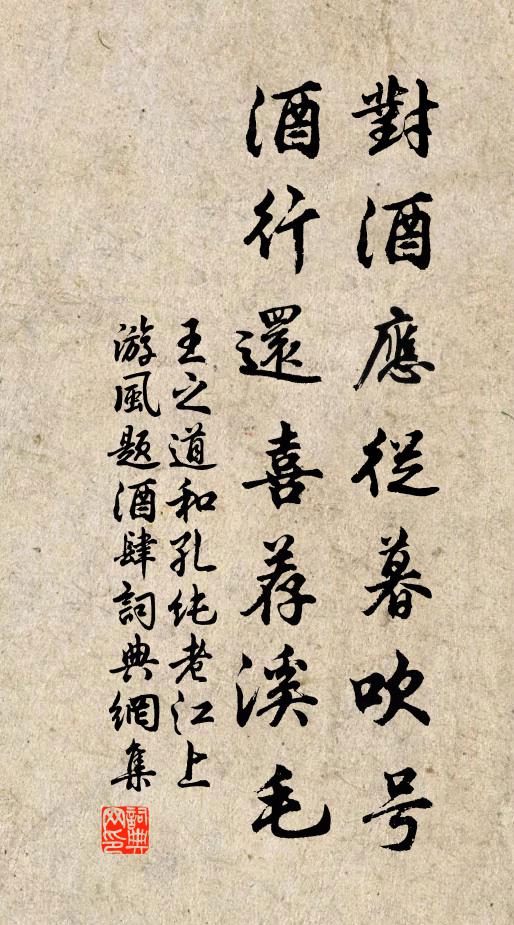 對酒應從暮吹号
酒行還喜荐溪毛
王之道和孔纯老江上
游風題酒肆詞典網集
詞典网印